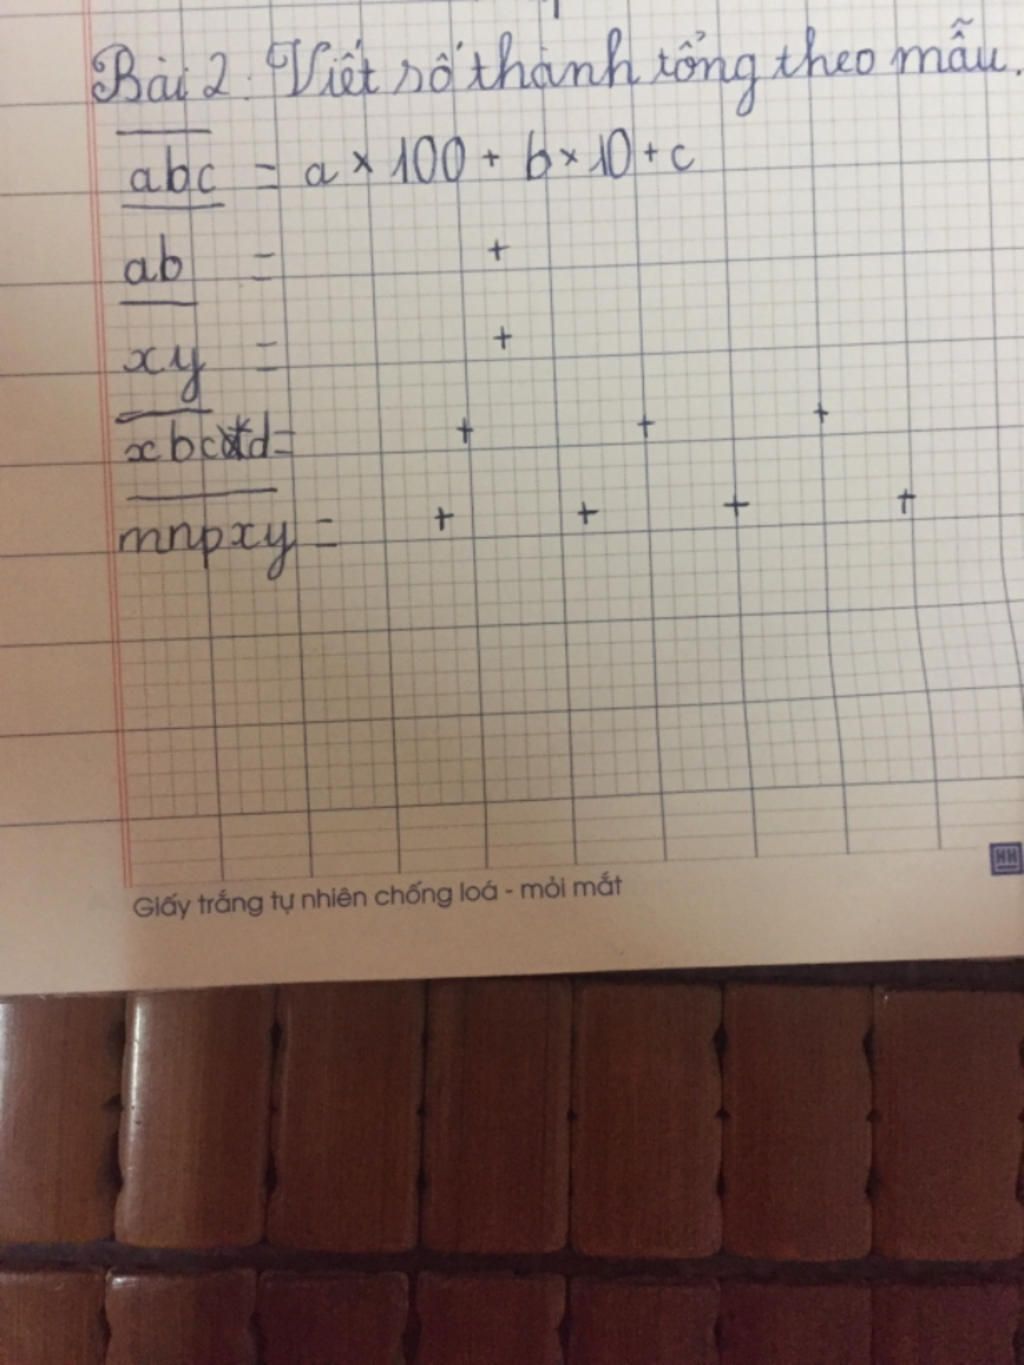 Bài 2. Viết số thành tổng theo mẫu.
abc = a × 100 + b × 10 + c
ab = +
xy = +
xbcd = + + +
mnpxy = + + + +
Giấy trắng tự nhiên chống loá - mỏi mắt
HH